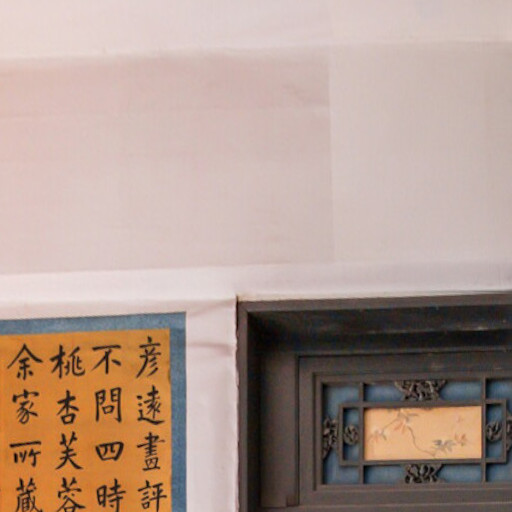 彦遠畫評
不問四時
桃杏芙蓉
余家所藏